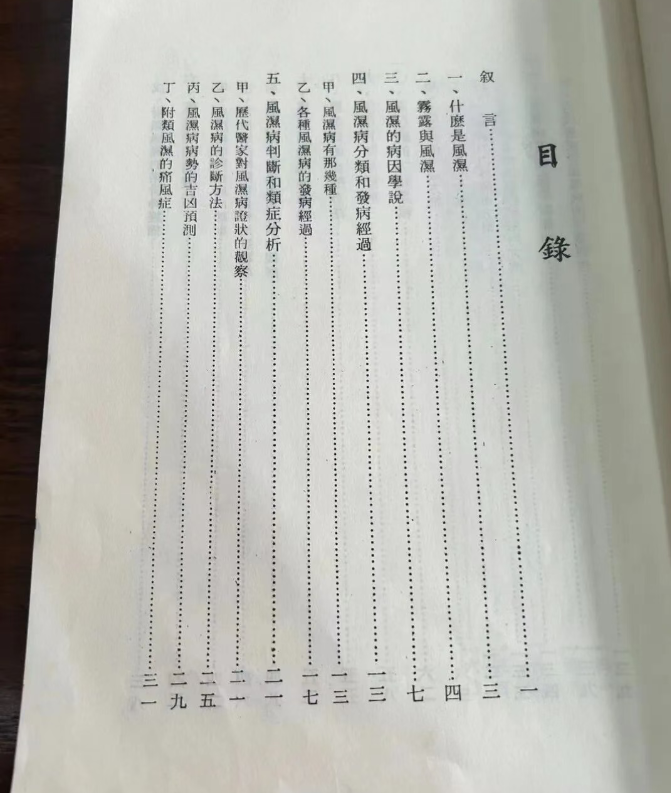 目錄
叙言…一
一、什麽是風濕…三
二、霧露與風濕…四
三、風濕的病因學說…七
四、風濕病分類和發病經過…一三
甲、風濕病有那幾種…一三
乙、各種風濕病的發病經過…一七
五、風濕病判斷和類症分析…二一
甲、歷代醫家對風濕病證狀的觀察…二一
乙、風濕病的診斷方法…二五
丙、風濕病病勢的吉凶預測…二九
丁、附類風濕的痛風症…三一